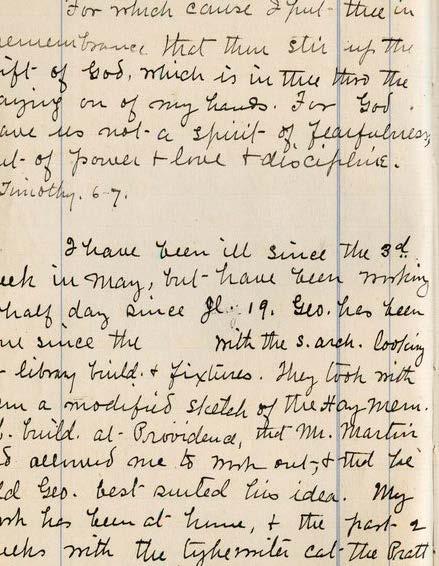 For which cause I put thee in
remembrance that thou stir up the
gift of God, which is in thee thro the
laying on of my hands. For God
gave us not a spirit of fearfulness,
but of power & love & discipline.
Timothy. 6-7.
I have been ill since the 3d
week in May, but have been working
half day since Jl. 19. Geo. has been
since the with the s. arch. looking
library build. & fixtures. They took with
a modified sketch of the Hay Mem.
build. at Providence, that Mr. Martin
allowed me to work out, & that he
Geo. best suited his idea. My
work has been at home, & the past 2
weeks with the typewriter cat. the Pratt